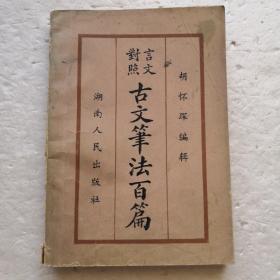 胡怀琛編輯
言文對照
古文筆法百篇
湖南人民出版社